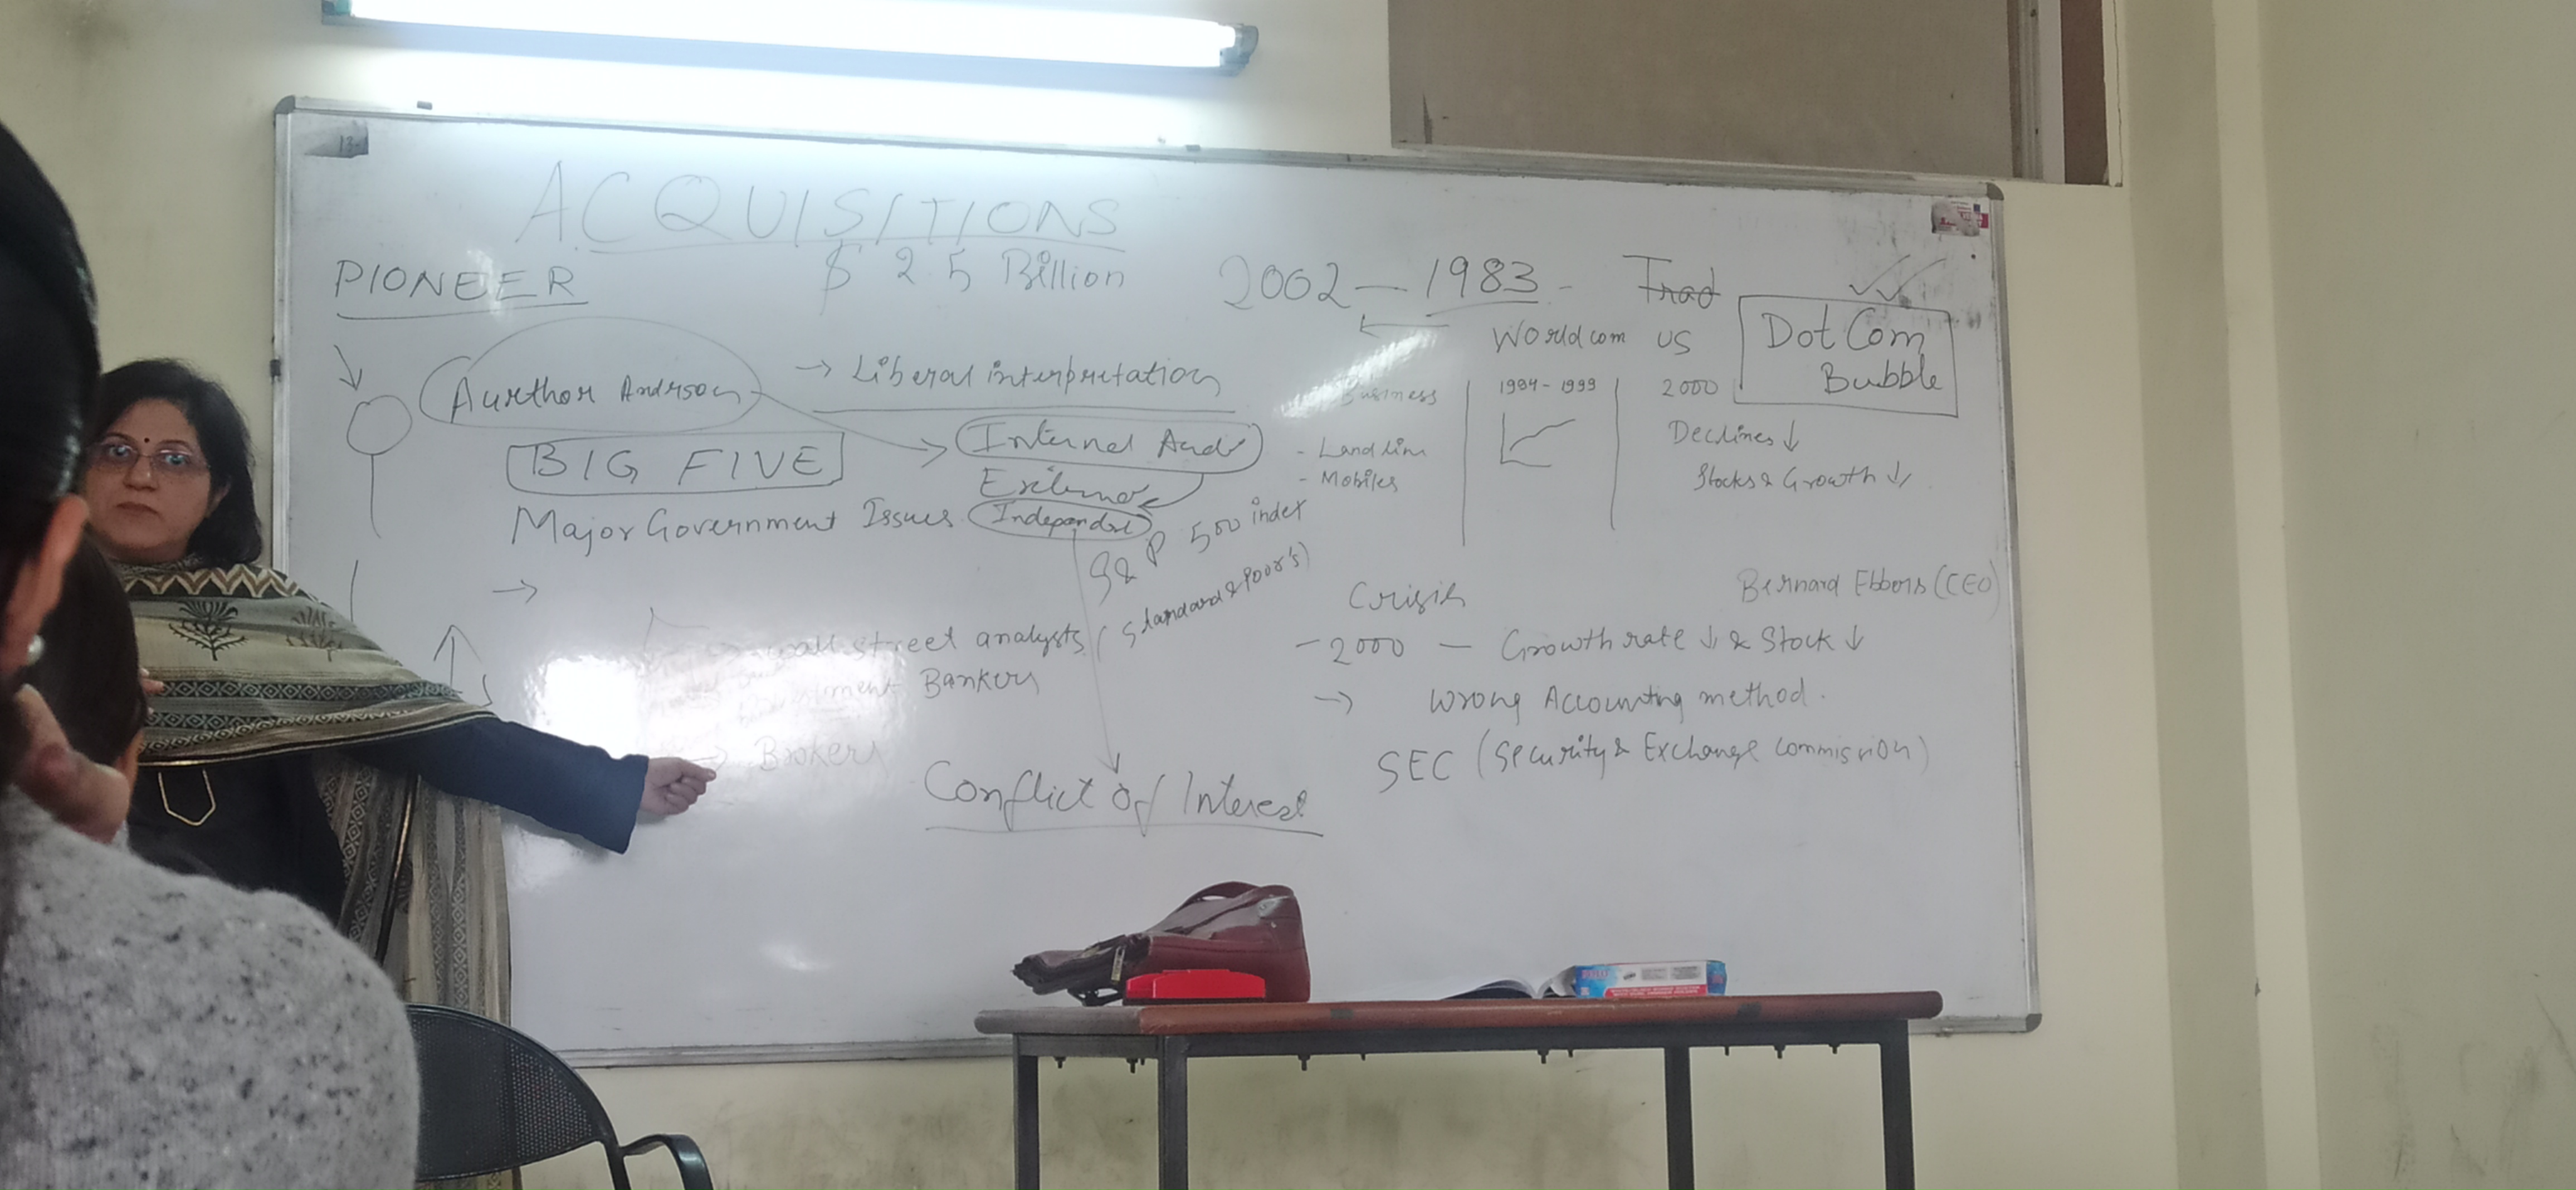 ACQUISITIONS
$ 2.5 Billion
PIONEER
Aurthor Anderson
→ Liberal interpretation
BIG FIVE
Internal Aud
External
Major Government Issues
Independent
S & P 500 index
(Standard & Poor's)
→
wall street analysts
Investment Bankers
→ Brokers
Conflict of Interest
2002 — 1983 - Trad
Worldcom US
Dot Com
Bubble
Business
- Landline
- Mobiles
1994 - 1999
2000
Declines ↓
Stocks & Growth ↓
Crisis
Bernard Ebbers (CEO)
- 2000 — Growth rate ↓ & Stock ↓
→ Wrong Accounting method.
SEC (Security & Exchange Commission)